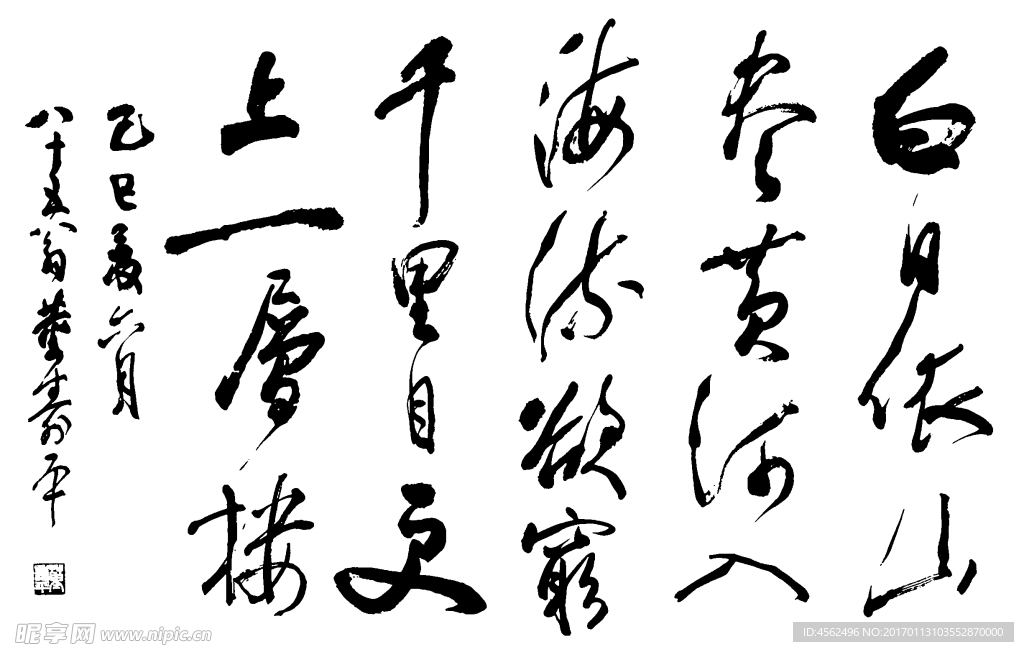 白日依山
尽黄河入
海流欲窮
千里目更
上一層楼
己巳歲六月
八十五八翁董壽平
昵享网 www.nipic.cn
ID:4562496 NO:20170113103552870000